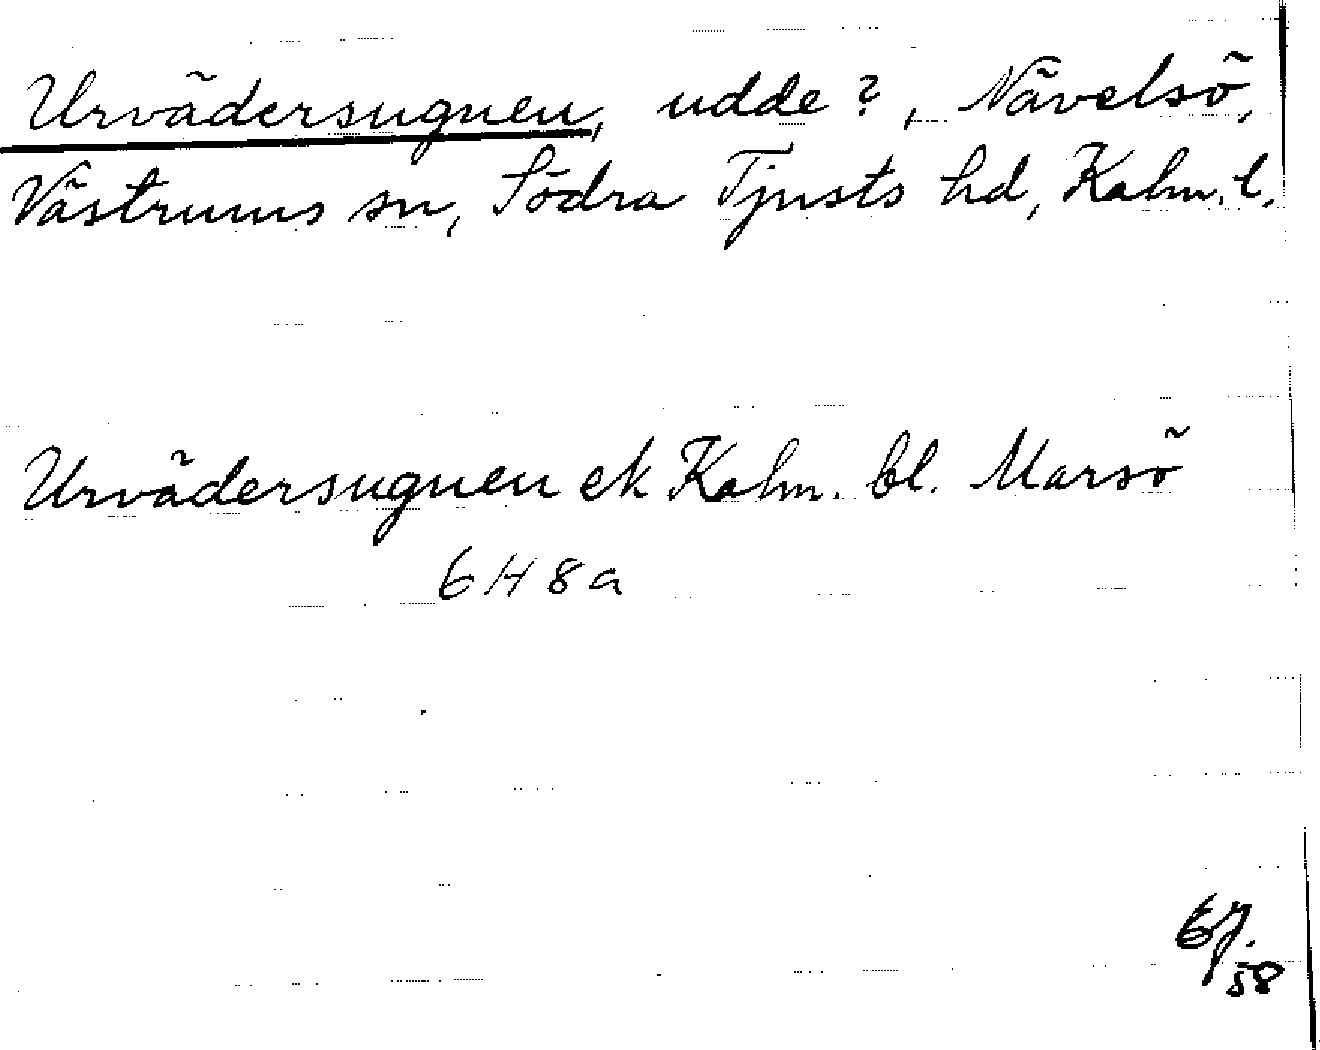 Urvädersugnen, udde?, Nävelsö,
Västrums sn, Södra Tjusts hd, Kalm. l.
Urvädersugnen ek Kalm. bl. Marsö
6 H 8 a
58